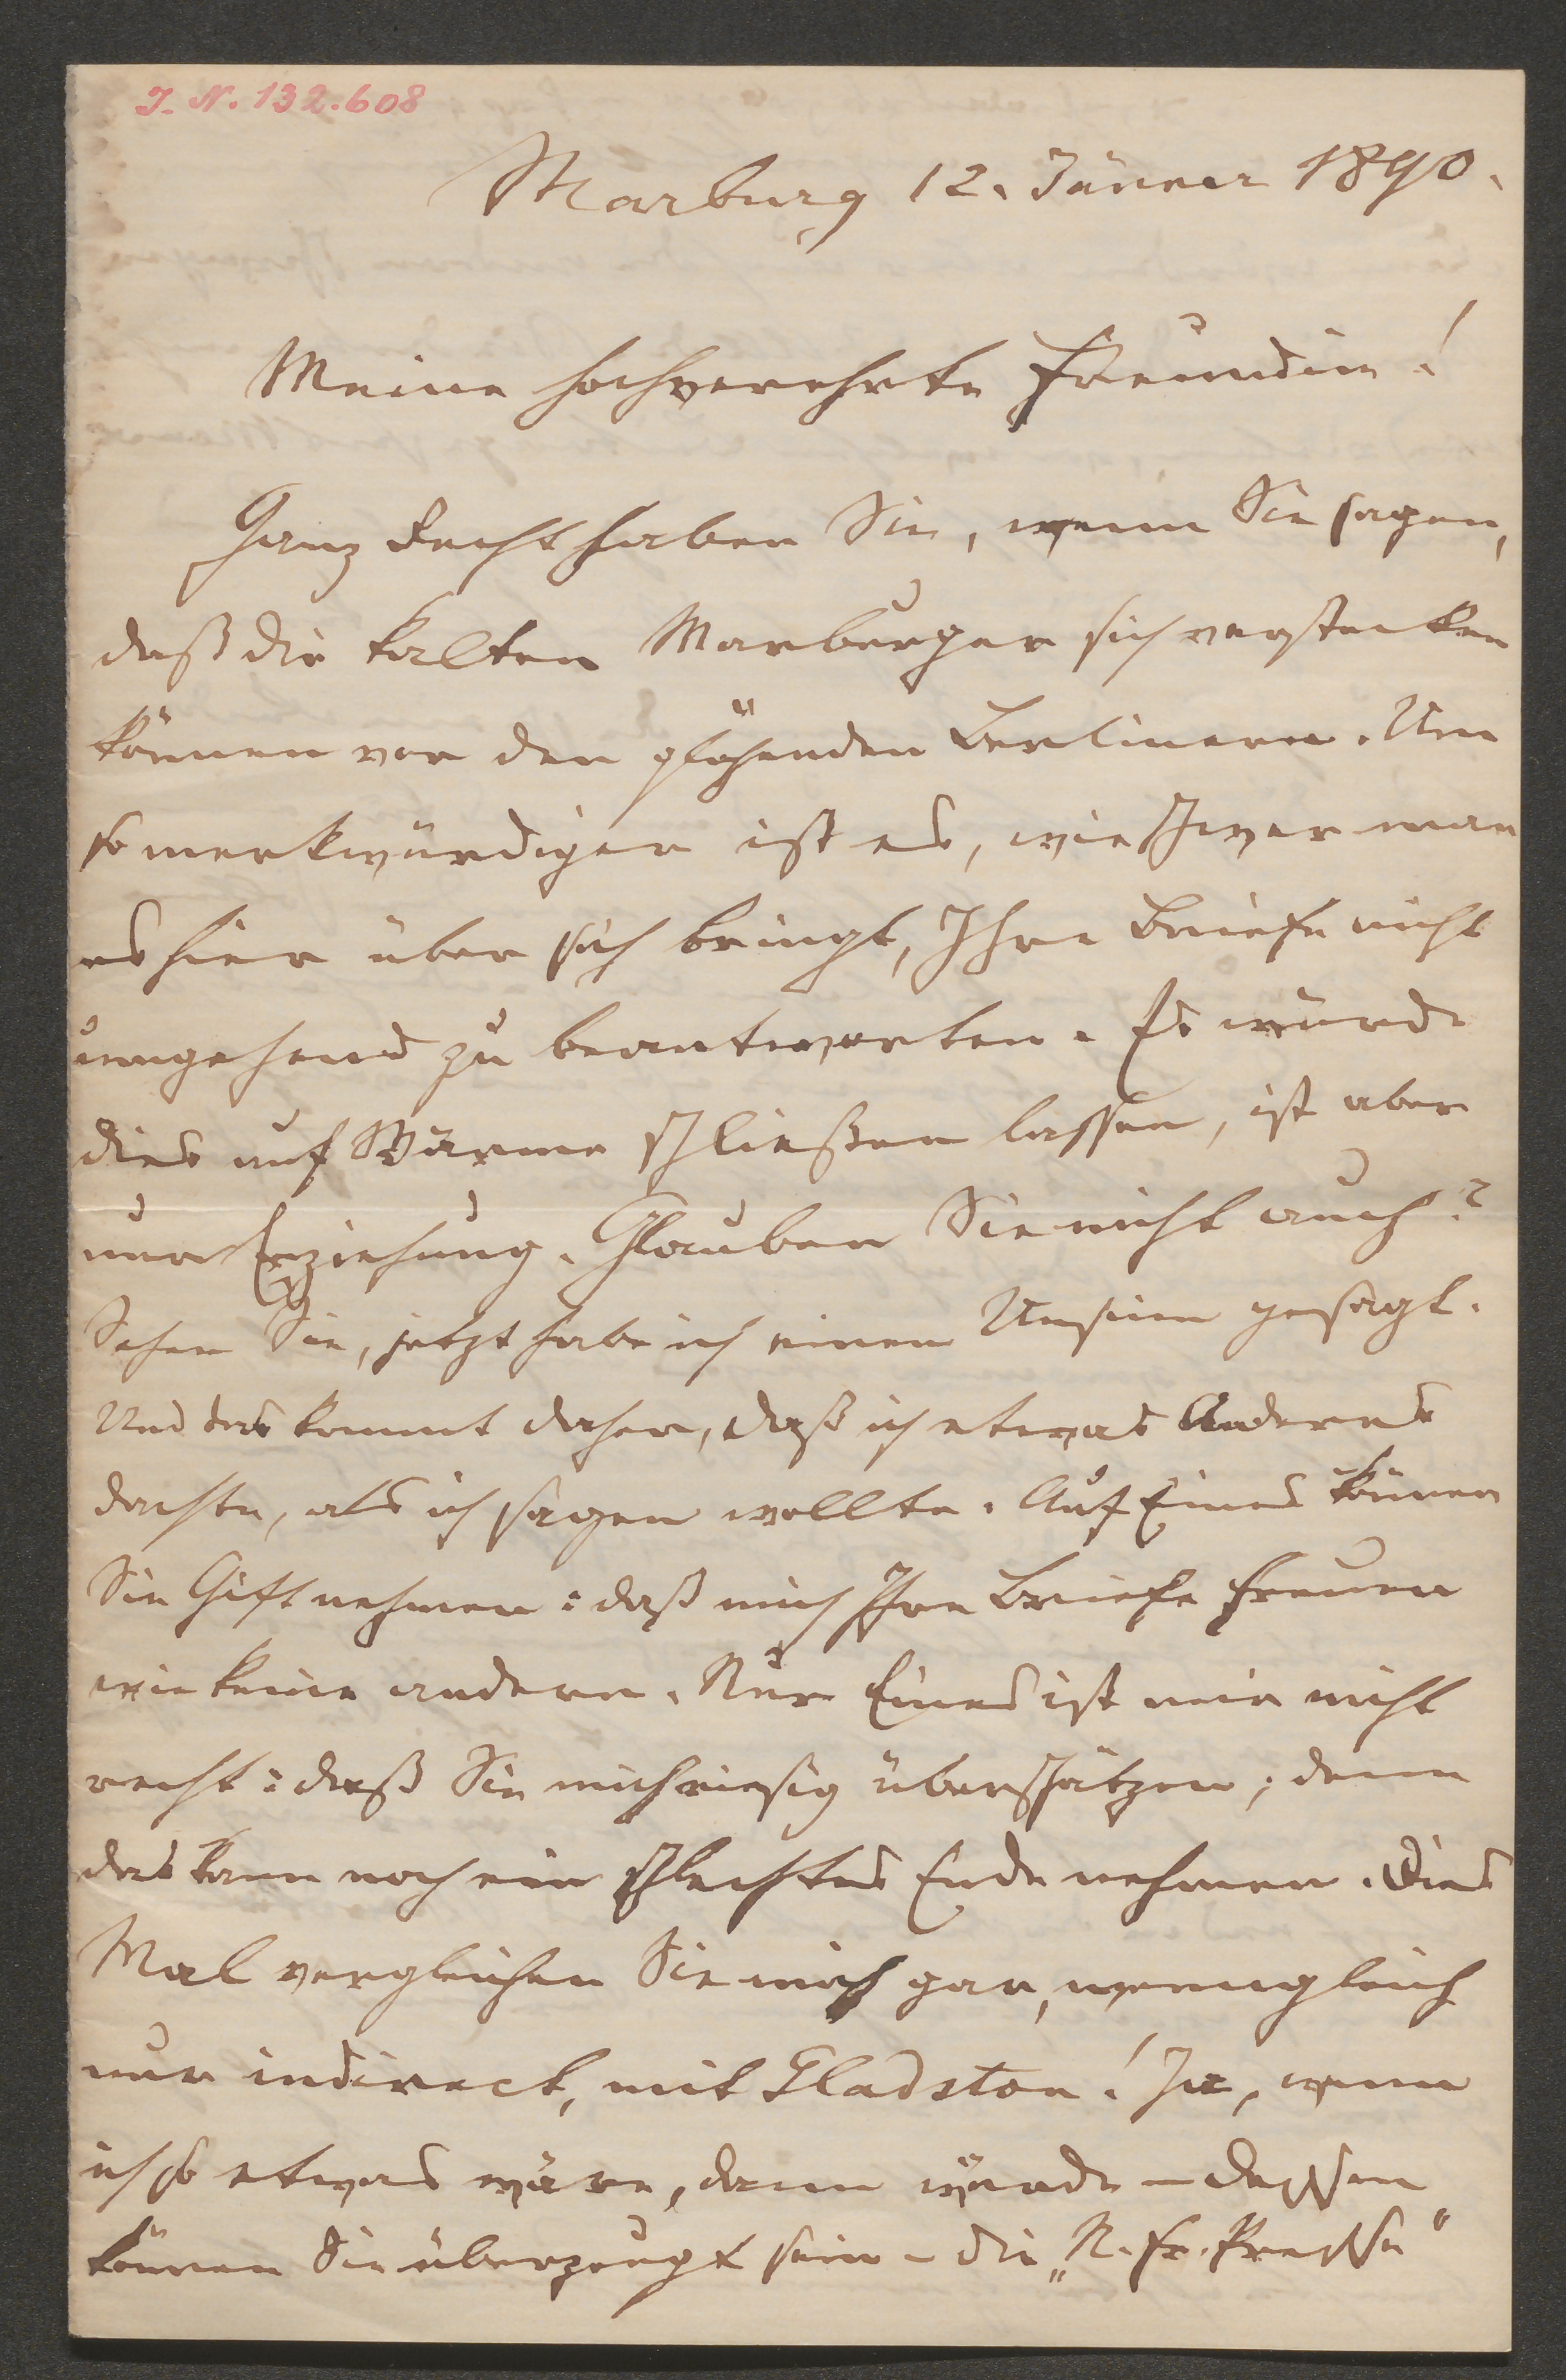 J. N. 132.608
Marburg 12. Jänner 1890.
Meine hochverehrte Freundin!
Ganz Recht haben Sie, wenn Sie sagen,
daß die kalten Marburger sich verstecken
können vor den glühenden Berlinern. Um
so merkwürdiger ist es, wie schwer man
es hier über sich bringt, Ihre Briefe nicht
umgehend zu beantworten. Es würde
dies auf Wärme schließen lassen, ist aber
nur Erziehung. Glauben Sie nicht auch?
Sehen Sie, jetzt habe ich einen Unsinn gesagt.
Und das kommt daher, daß ich etwas Anderes
dachte, als ich sagen wollte. Auf Eines können
Sie Gift nehmen: daß mich Ihre Briefe freuen
wie keine andern. Nur Eines ist mir nicht
recht: daß Sie mich riesig überschätzen; denn
das kann noch ein schlechtes Ende nehmen. Dies
Mal vergleichen Sie mich gar, wenngleich
nur indirect, mit Gladston! Ja, wenn
ich so etwas wäre, dann würde – dessen
können Sie überzeugt sein – die „N. Fr. Presse“